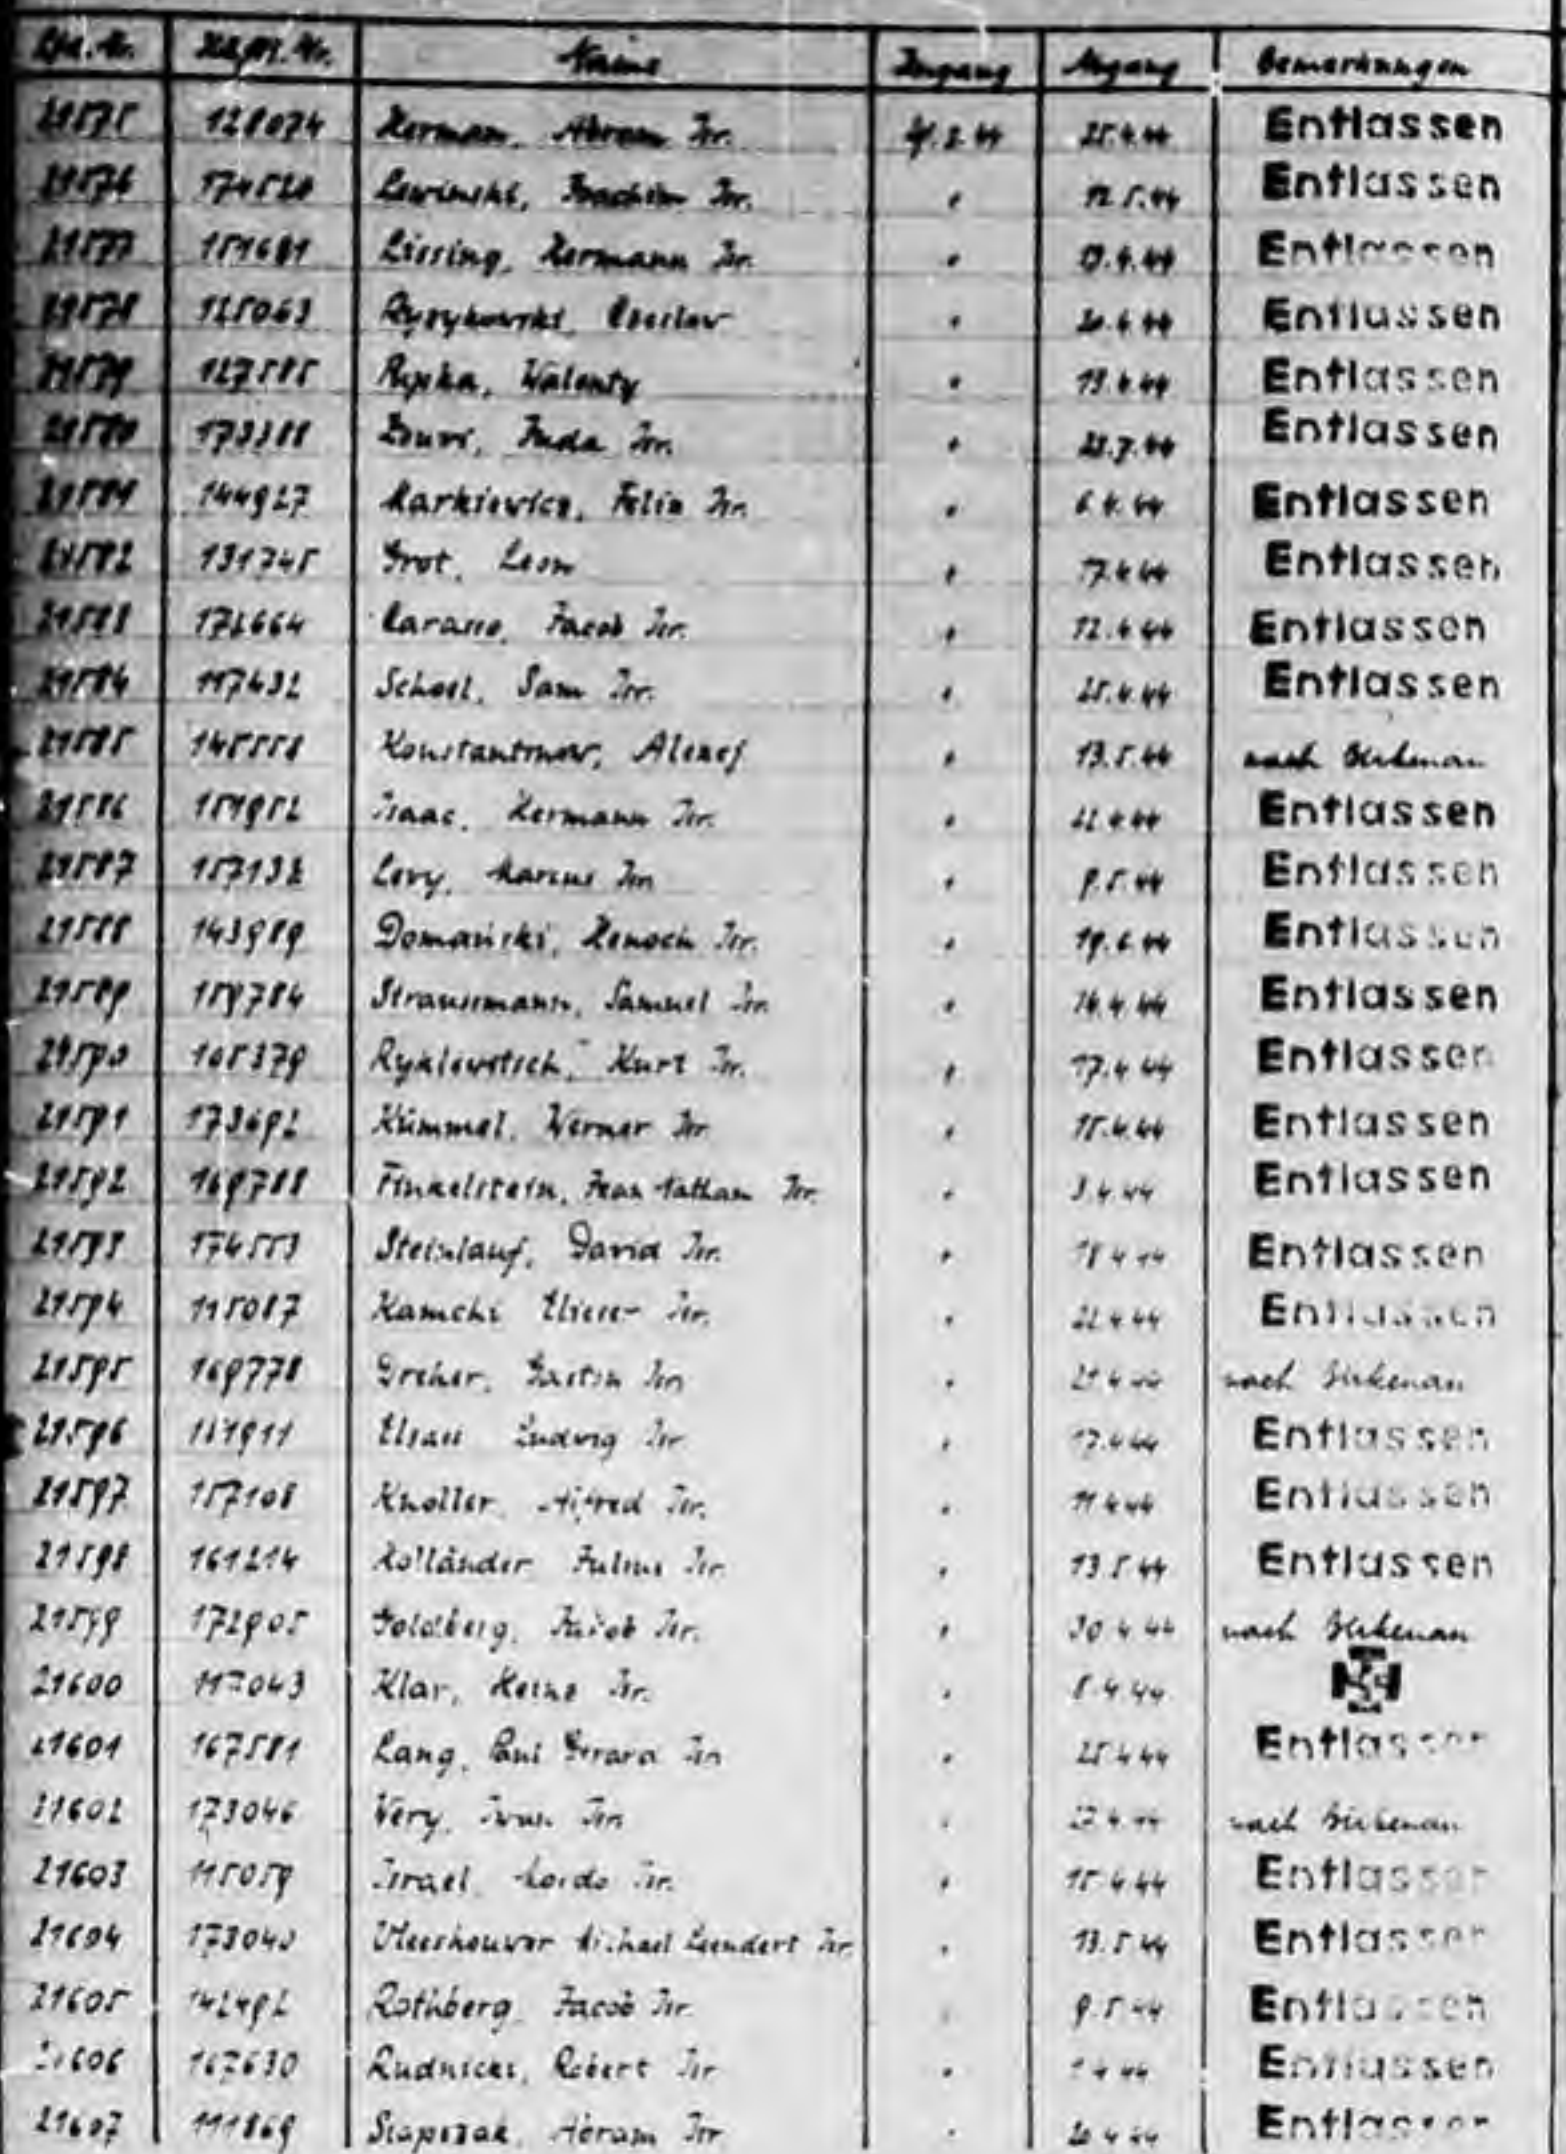 Lfd. Nr. Häftl. Nr. Name Zugang Abgang Bemerkungen
21575 128074 Herman, Abram Isr. 2.44 25.4.44 Entlassen
21576 174520 Lewinski, Joachim Isr. " 12.5.44 Entlassen
21577 151681 Lissing, Hermann Isr. " Entlassen
21578 125063 " Entlassen
21579 127585 Walenty " 19.4.44 Entlassen
21580 173388 Juda Isr. " 28.7.44 Entlassen
21581 144927 Markiewicz, Felix Isr. " 6.4.44 Entlassen
21582 131745 Grot, Leon " 17.4.44 Entlassen
21583 172664 Carasso, Jacob Isr. " 12.4.44 Entlassen
21584 117432 Sam Isr. " 25.4.44 Entlassen
21585 145558 Konstantinow, Alexej " 13.5.44 nach Birkenau
21586 151952 Isaac, Hermann Isr. " 22.4.44 Entlassen
21587 157132 Levy, Marcus Isr. " 9.5.44 Entlassen
21588 143989 Domański, Henoch Isr. " 19.6.44 Entlassen
21589 159784 Straussmann, Samuel Isr. " 14.4.44 Entlassen
21590 105379 Kurt Isr. " 17.4.44 Entlassen
21591 173692 Kümmel, Werner Isr. " 15.4.44 Entlassen
21592 169788 Finkelstein, Jean Nathan Isr. " 3.4.44 Entlassen
21593 174553 Steinlauf, David Isr. " 18.4.44 Entlassen
21594 115087 Kamchi Elieser Isr. " 22.4.44 Entlassen
21595 169778 Dreher, Isr. " 21.4.44 nach Birkenau
21596 Ludwig Isr. " 17.4.44 Entlassen
21597 157108 Knoller, Alfred Isr. " 11.4.44 Entlassen
21598 161214 Holländer Julius Isr. " 13.5.44 Entlassen
21599 172905 Goldberg, Jacob Isr. " 30.4.44 nach Birkenau
21600 117043 Klar, Heinz Isr. " 8.4.44
21601 167581 Lang, Paul Gerard Isr. " 25.4.44 Entlassen
21602 173046 Very, Isr. " 27.4.44 nach Birkenau
21603 115059 Israel, Isr. " 15.4.44 Entlassen
21604 Vleeshouwer Michael Leendert Isr. " 13.5.44 Entlassen
21605 142492 Rothberg, Jacob Isr. " 9.5.44 Entlassen
21606 167630 Rudnicki, Robert Isr. " Entlassen
21607 111869 Abram Isr. " 20.4.44 Entlassen